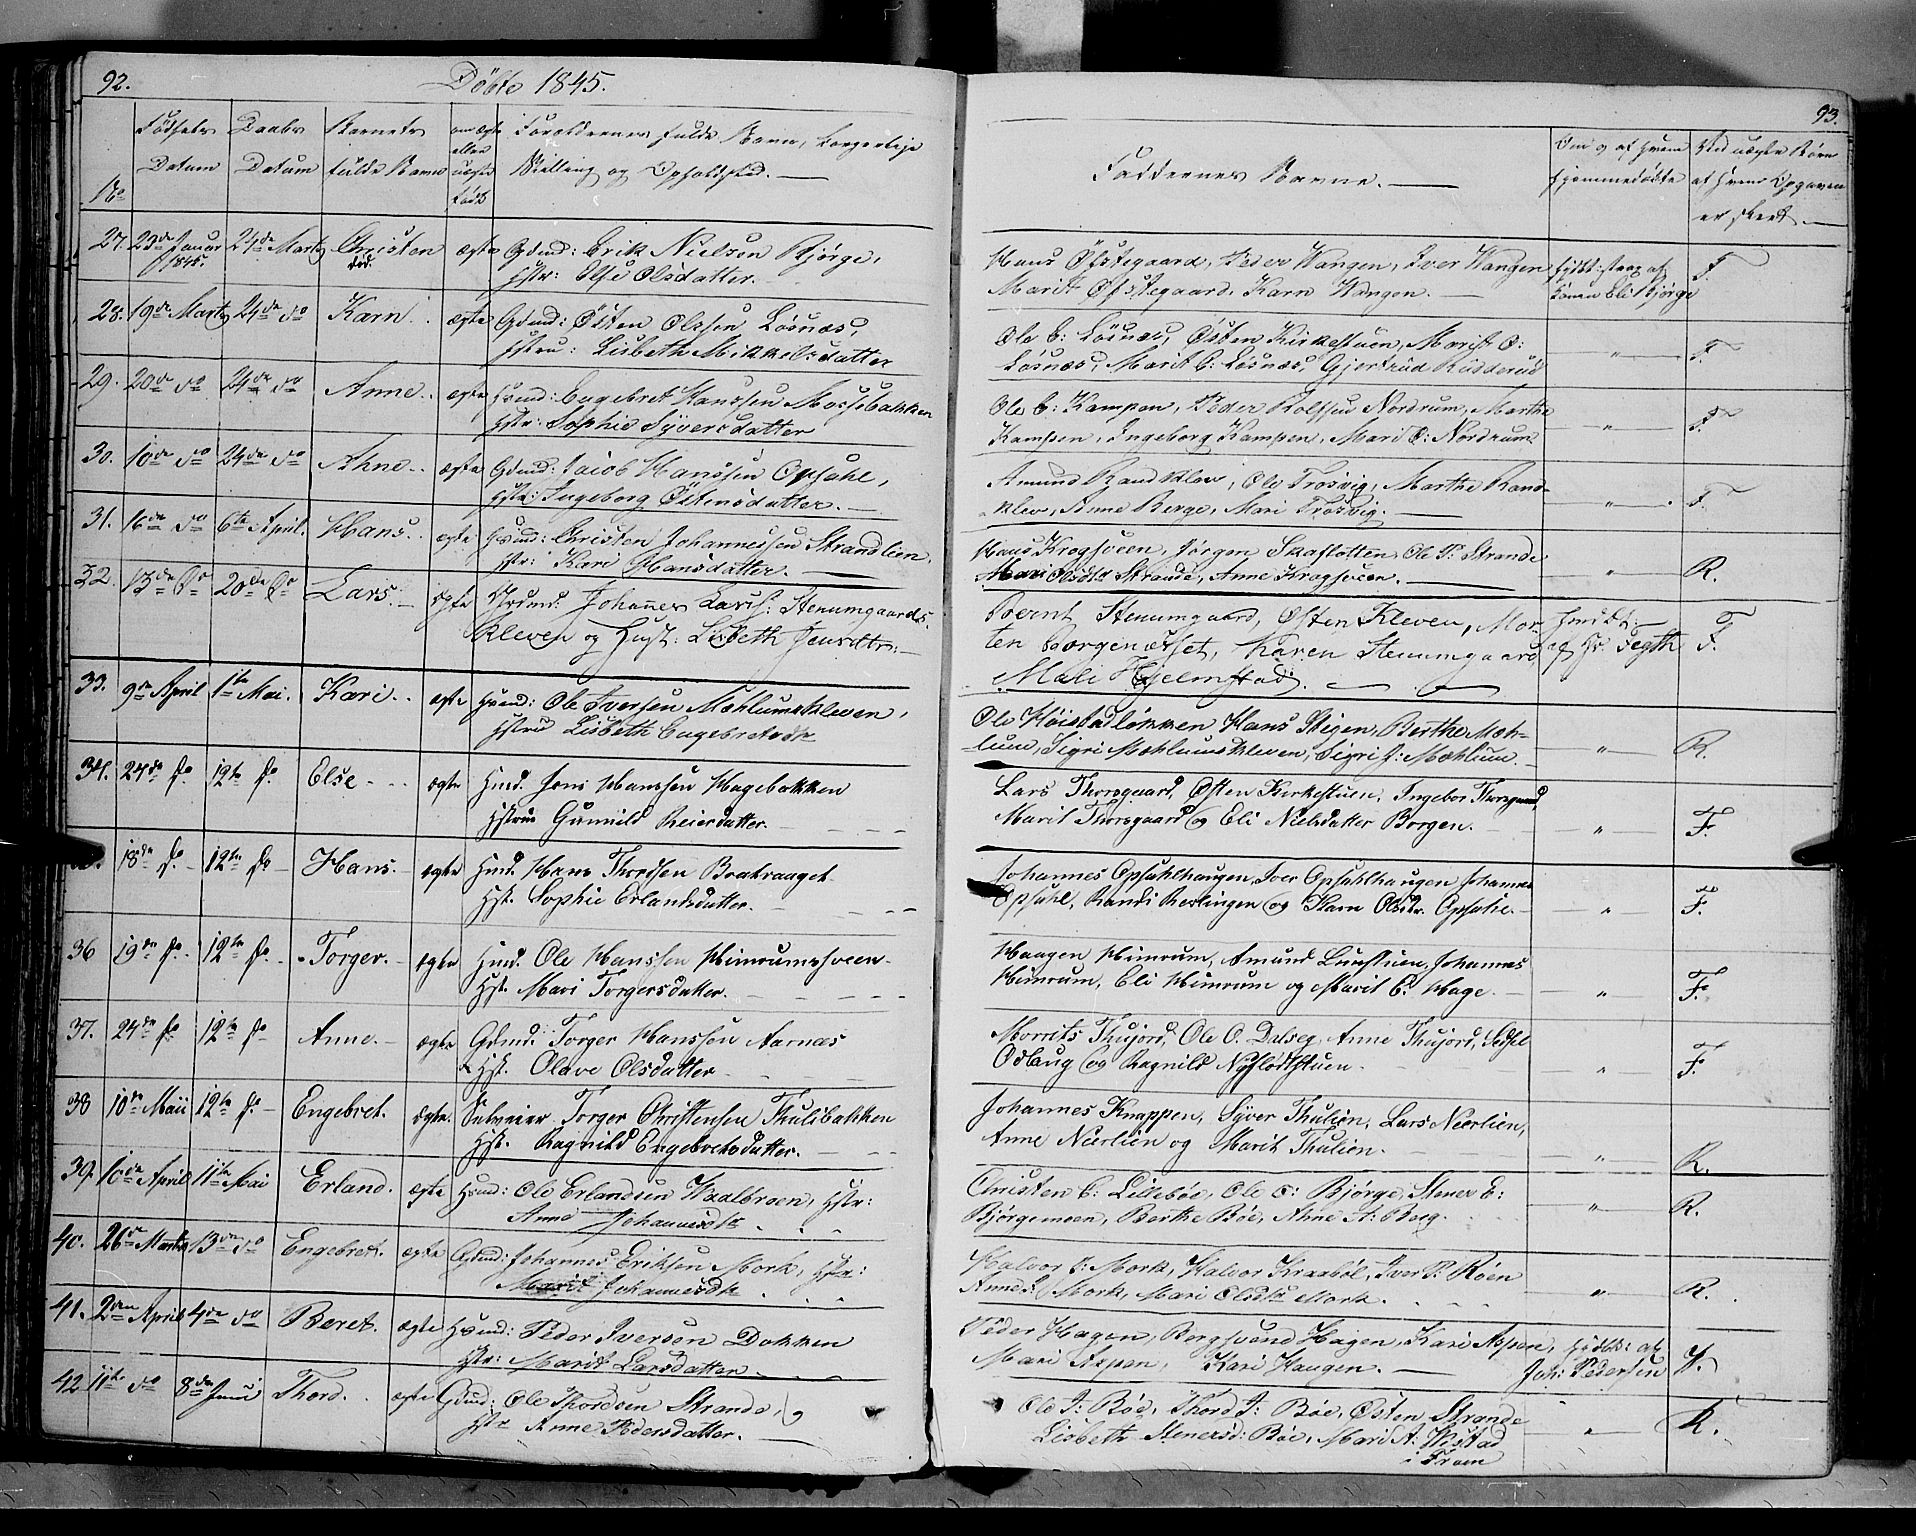 92.
Döbte 1845.
No
Födsels Datum
Daabs Datum
Barnets fulde Navn
om ægte eller uægte født
Forældrenes fulde Navn, borgerlige Stilling og Opholdsted.
27. 23de Januar 1845. 24de Marts Christen død. ægte Gdmd: Erik Nielsen Bjørge,
Hstr: Olsdatter.
28. 19de Marts 24de do Karn. ægte Gdmd: Østen Olssen Løsnæs,
Hstru: Lisbeth Mikkelsdatter
29. 20de do 24de do Anne. ægte Hsmd: Engebret Hanssen Mossebakken
Hstr: Sophie Syversdatter
30. 10de do 24de do Ahne. ægte Gdmd: Jacob Hanssen Opsahl,
Hstr: Ingeborg Østensdatter.
31. 16de do 6te April. Hans. ægte Hsmd: Christen Johannessen Strandlien,
Hstr: Kari Hansdatter.
32. 13de do 20de do Lars. ægte Hsmd: Johannes Larss: Stenumgaards-
kleven og Hust: Lisbeth Jensdtr:
33. 9de April 1te Mai. Kari. ægte Hsmd: Ole Iversen Mæhlumskleven,
Hstru Lisbeth Engebretsdtr
34. 24de do. 12te do. Else ægte Hmd. Jens Hanssen Hagebakken
Hstrue Gunnild Reiersdatter.
18de do. 12te do. Hans. ægte Hmd. Hans Thordsen Bratvaaget
Hst. Sophie Erlandsdatter.
36 19de do. 12te do. Torger. ægte Hmd. Ole Hanssen Himrumssveen
Hst. Mari Torgersdatter.
37. 24de do 12te do. Anne. ægte Gdmd. Torger Hanssen Aarnæs
Hst. Olave Olsdatter
38 10de Maii 12te do. Engebret. ægte. Selveier Torger Christensen Thulibakken
Hst. Ragnild Engebretsdatter.
39. 10de April 11te Mai Erland. ægte Hsmd: Ole Erlandsen Waalbroen, Hstr:
Anne Johannesdtr
40. 26de Marts 13de do Engebret. ægte Gdmd: Johannes Eriksen Mork, Hstr:
Marit Johannesdtr
41. 2den April 4de do Beret. ægte Hsmd: Peder Iversen Dokken
Hstr: Marit Larsdatter
42 11te do 8de Juni Thord. ægte Gdmd: Ole Thordsen Strande, og
Hstr Anne Pedersdatter.
93.
Faddernes Navne.
Om og af hvem hjemmedøbte
Ved uægte Børn af hvem Opgaven er skeet
Hans Øfstegaard, Peder Wangen, Iver Wangen hjdbt: strax af F.
Marit Øfstegaard, Karn Wangen. Konen Eli Bjørge
Ole E: Løsnæs, Østen Kirkestuen, Marit O:
Løsnæs, Marit E: Løsnæs, Gjertrud Rudderud " F.
Ole E: Kampen, Peder Rolfsen Nordrum, Marthe
Kampen, Ingeborg Kampen, Mari O: Nordrum " F.
Amund Randklev, Ole Trosvig, Marthe Rand-
klev, Anne Berge, Mari Trosvig. " F.
Hans Krogsveen, Jørgen Skaflotten, Ole P: Strande
Mari Olsdtr Strande, Anne Krogsveen. " R.
Bernt Stenumgaard, Østen Kleven, Mor-
ten Borgenæsset, Karen Stenumgaard af Hr Fegth F.
Mali Hjelmstad.
Ole Høistadløkken Hans Stigen, Berthe Mæh-
lum, Sigri Mæhlumskleven, Sigri J: Mæhlum " R.
Lars Thorsgaard, Østen Kirkestuen, Ingebor Thorsgaard,
Marit Thorsgaard og Eli Nielsdatter Borgen. " F.
Johannes Opsahlhaugen, Iver Opsahlhaugen Johannes
Opsahl, Randi Kerlingen og Karn Olsdtr. Opsahl. " F.
Haagen Himrum, Amund Lunstuen, Johannes
Himrum, Eli Himrum og Marit E. Hage. " F.
Morrits Thujord, Ole O. Dalseg, Anne Thujord,
Odlaug og Ragnild Nyflodtstuen. " F.
Johannes Knappen, Syver Thulien, Lars Nierlien,
Anne Nierlien og Marit Thulien. " R.
Christen E: Lillebøe, Ole O: Bjørge, Stener E:
Bjørgemoen, Berthe Bøe, Ahne A: Berg. " R.
Halvor E: Mork, Halvor Kraabøl, Iver P: Røen
Anne J: Mork, Mari Olsdtr Mork. " R.
Peder Hagen, Bergsvend Hagen, Kari Aspen, hjdbt: af
Mari Aspen, Kari Haugen. Joh: Pedersen F.
Ole J: Bøe, Thord J: Bøe, Østen Strande
Lisbeth Stenersd: Bøe, Mari A: Wistad " R.
i Fron